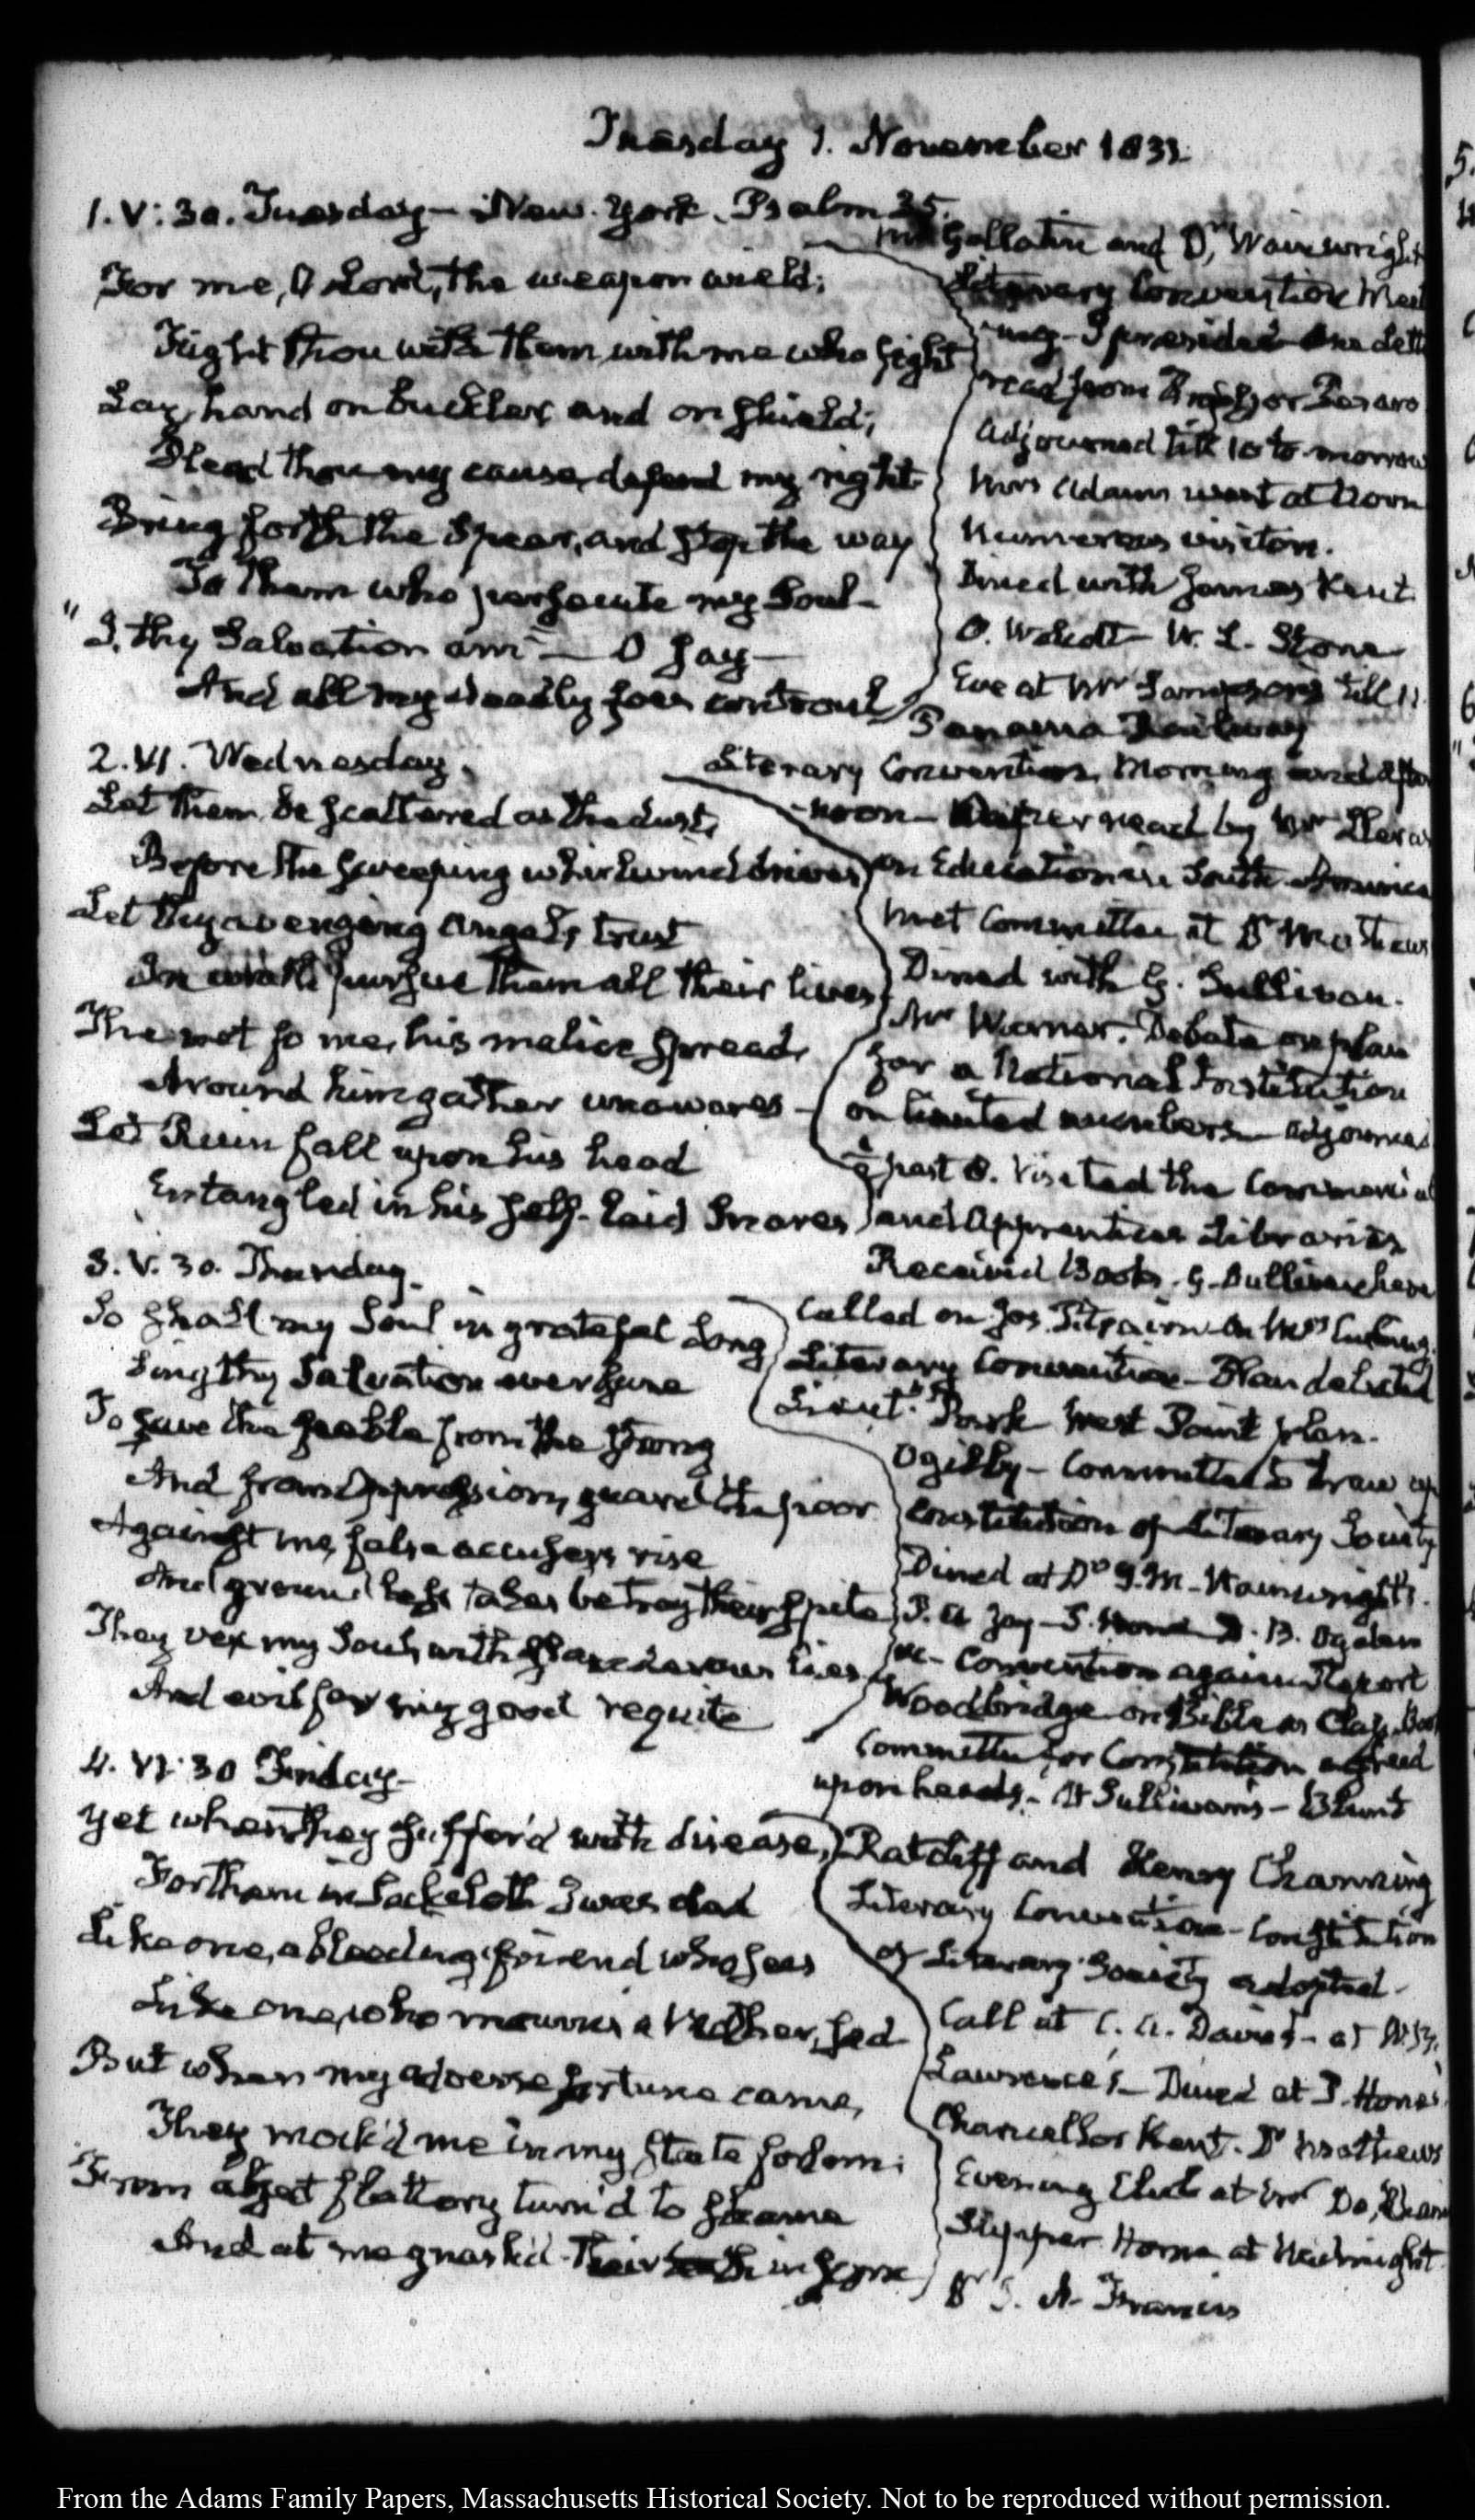 Tuesday 1. November 1831
1. V:30. Tuesday — New-York. Psalm 35.
For me, O Lord, the weapon wield;
Fight thou with them, with me who fight
Lay hand on buckler, and on shield;
Plead thou my cause, defend my right
Bring forth the Spear, and stop the way
To them who persecute my Soul—
"I, thy Salvation am" — O say—
And all my deadly foes controul
Mr Gallatin and Dr Wainwright
Literary Convention Meet
-ing — I presided
read from
Adjourned till 10 to-morrow
Mrs Adams went at Noon
Numerous visitors.
Dined with James Kent
O. Wolcott — W. L. Stone
Eve at Mr till 11
Panama Railway
2. VI. Wednesday.
Let them be scattered as the dust,
Before the sweeping whirlwind driven
Let thy avenging Angel, trust
In wrath pursue them all their lives
The net for me, his malice spread,
Around him gather unawares —
Let Ruin fall upon his head
Entangled in his self-laid Snares
Literary Convention, Morning and after
-noon — Paper read by Mr
on Education in South America
Met Committee at Dr Mathews
Dined with G. Sullivan.
Mr Warner. Debate on plan
for a National Institution
on limited numbers — adjourned
past 8. Visited the Commercial
and Apprentices Libraries
Received Books. G. Sullivan here
3. V. 30. Thursday.
So shall my Soul in grateful Song
Sing thy Salvation evermore
To save the feeble from the strong
And from Oppression, guard the poor
Against me, false accusers rise
And groundless tales betray their spite
They vex my Soul, with slanderous lies
And evil for my good requite
Called on Jos. Pitcairn — On Mrs
Literary Convention — Plan debated
Lieut. Park West Point plan.
Ogilby — Committee to draw up
Constitution of Literary Society
Dined at Dr J. M. Wainwright's.
P. A. Jay — P. Hone D. B. Ogden
&c — Convention again Report
Woodbridge on Bible as Class. Book
Committee for Constitution agreed
upon heads. — At Sullivan's — Blunt
4. VI:30 Friday —
Yet when they suffer'd with disease,
For them in Sackcloth I was clad
Like one, a bleeding friend who sees
Like one, who mourns a Mother, sad
But when my adverse fortune came,
They mock'd me in my state forlorn;
From abject flattery turn'd to shame
And at me gnash'd their teeth in scorn
Ratcliff and Henry Channing
Literary Convention — Constitution
of Literary Society adopted —
Call at C. A. Davis's — at
Lawrence's — Dined at P. Hone's
Chancellor Kent. Dr Mathews
Evening Club at Mr
Supper Home at Midnight
Dr J. W. Francis
From the Adams Family Papers, Massachusetts Historical Society. Not to be reproduced without permission.